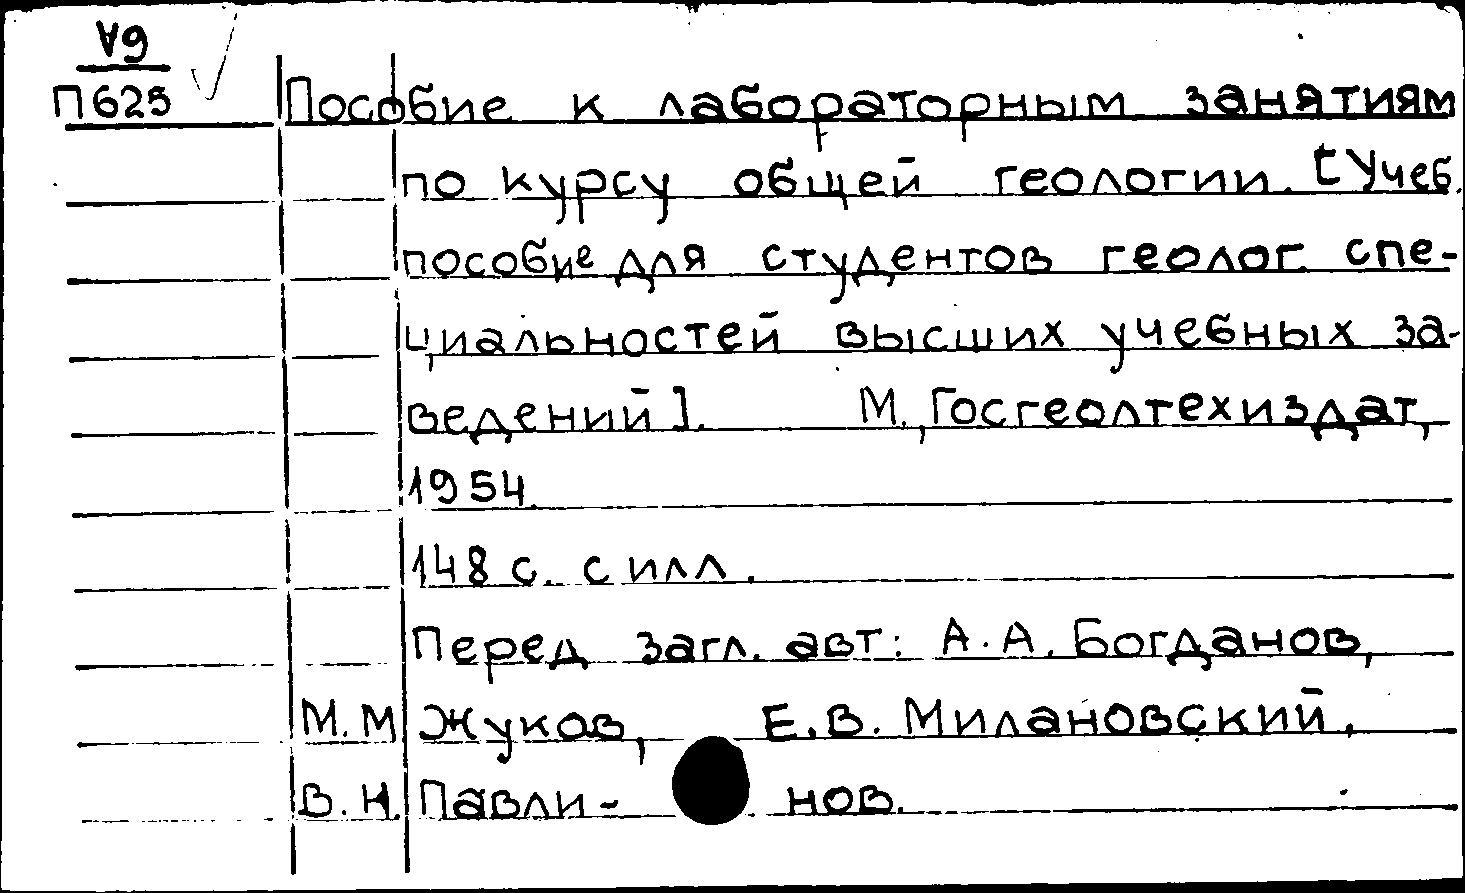 Vg
П625 Пособие к лабораторным занятиям
по курсу общей геологии. [Учеб.
пособие для студентов геолог. спе-
циальностей высших учебных за-
ведений]. М., Госгеолтехиздат,
1954.
148 с. с илл.
Перед загл. авт: А.А. Богданов,
М.М Жуков, Е.В. Милановский,
В.Н. Павли- нов.